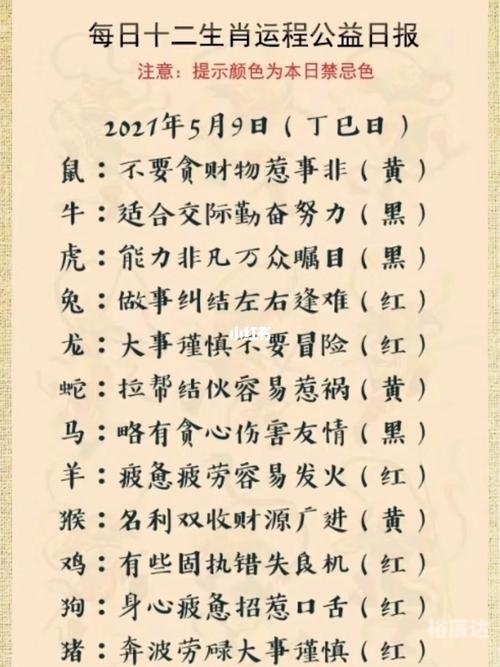 每日十二生肖运程公益日报
注意：提示颜色为本日禁忌色
2021年5月9日（丁巳日）
鼠：不要贪财物惹事非（黄）
牛：适合交际勤奋努力（黑）
虎：能力非凡万众瞩目（黑）
兔：做事纠结左右逢难（红）
小红书
龙：大事谨慎不要冒险（红）
蛇：拉帮结伙容易惹祸（黄）
马：略有贪心伤害友情（黑）
羊：疲惫疲劳容易发火（红）
猴：名利双收财源广进（黄）
鸡：有些固执错失良机（红）
狗：身心疲惫招惹口舌（红）
猪：奔波劳碌大事谨慎（红）
裕辰达